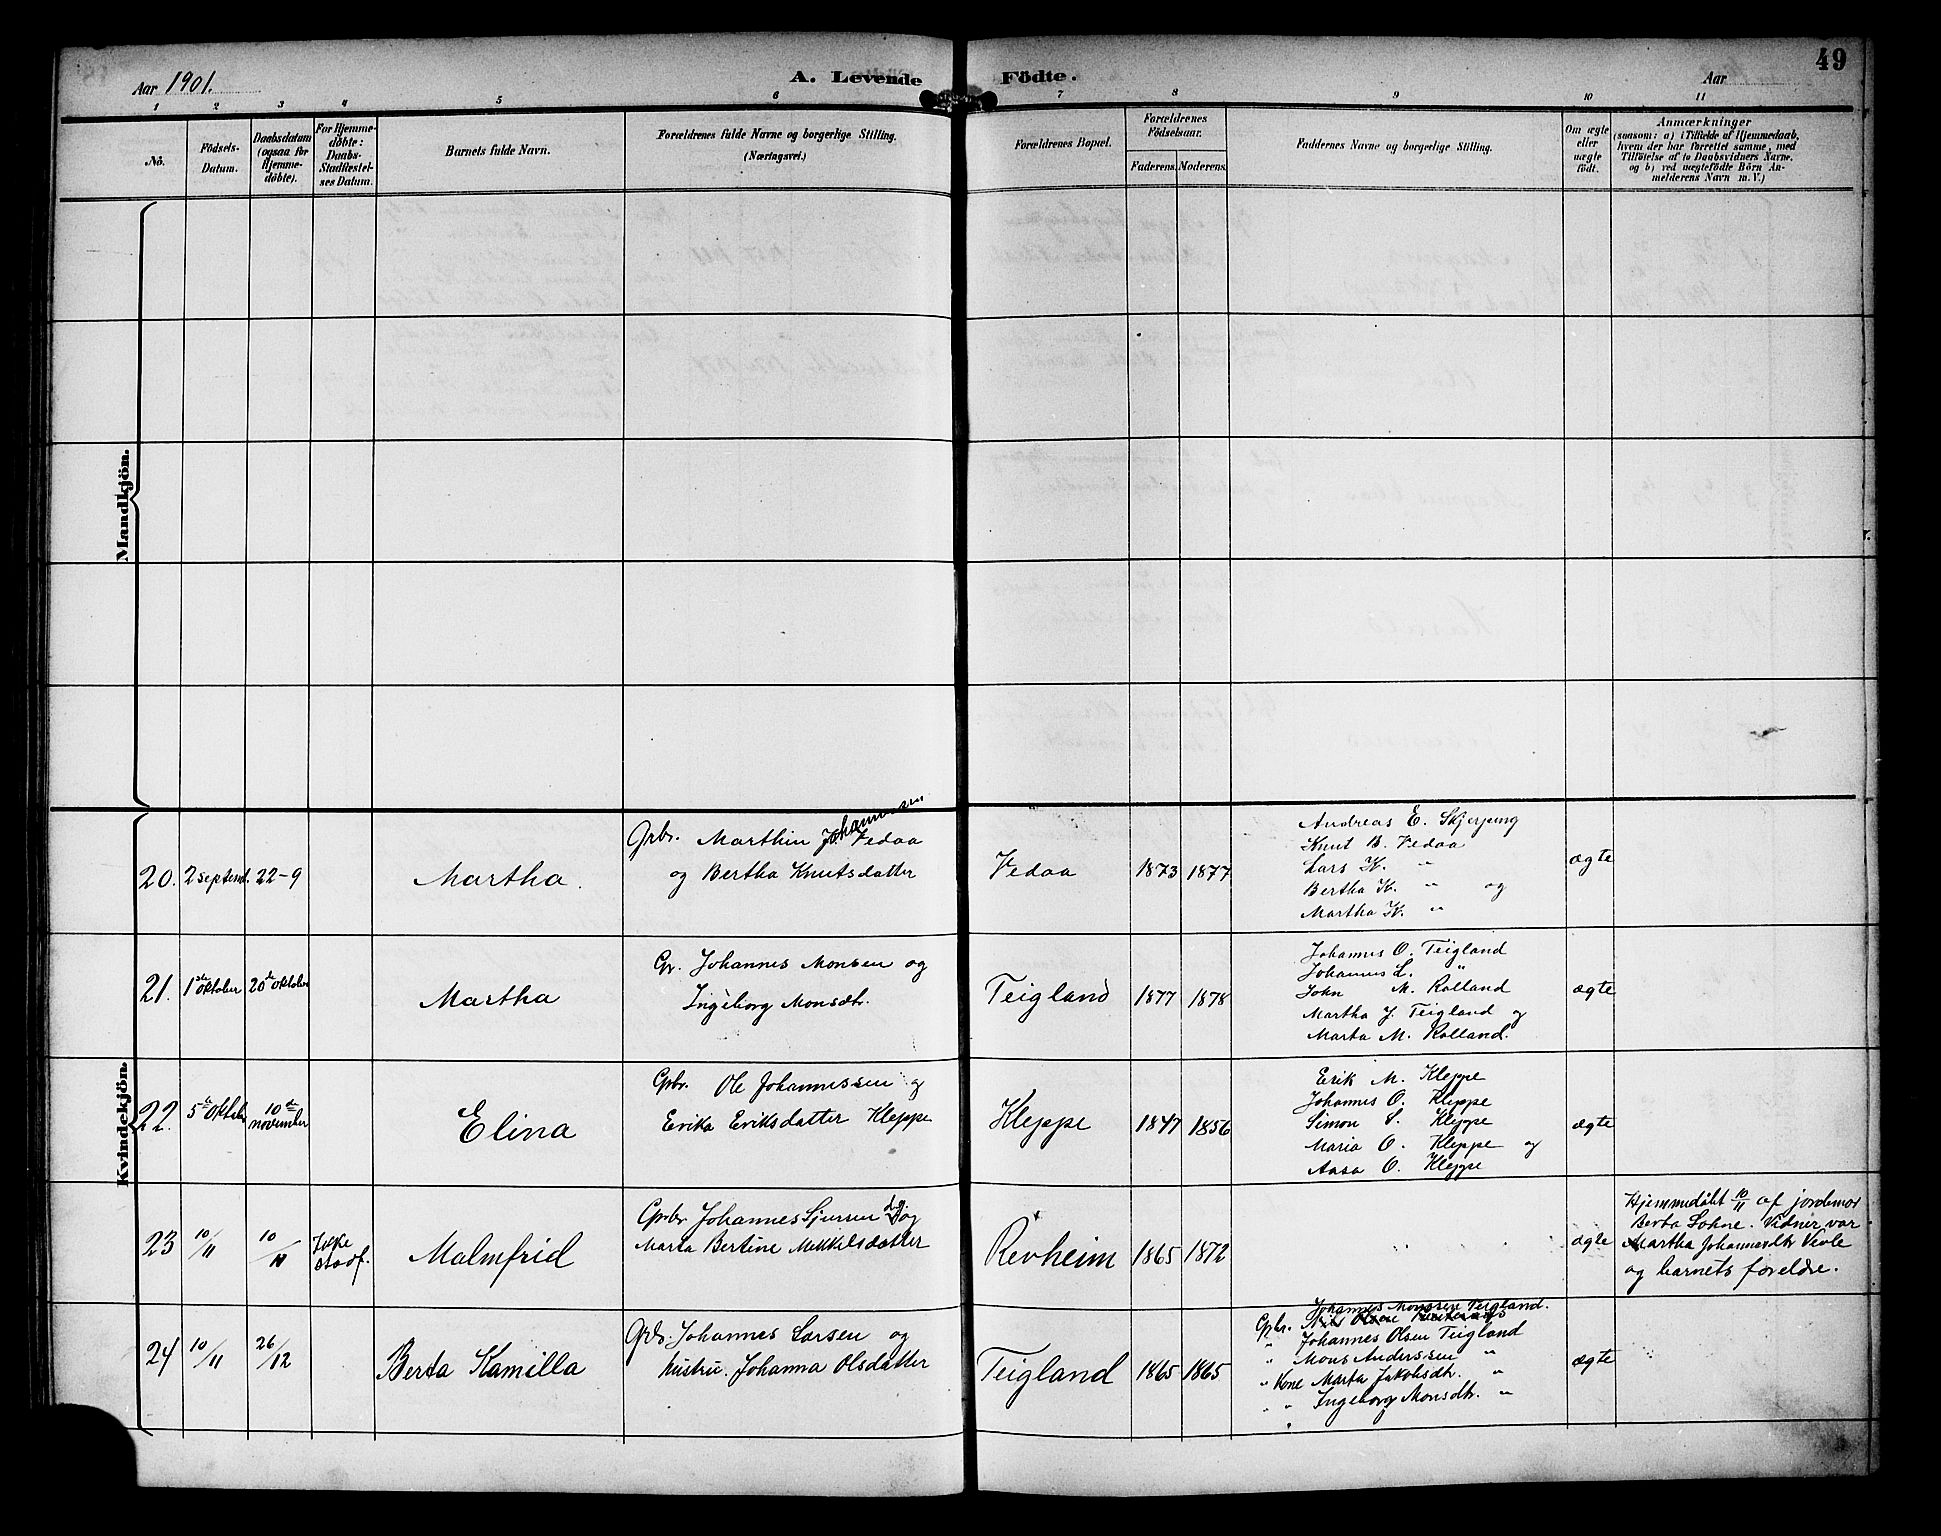 49
Aar 1901.
A. Levende Födte.
Aar
1 2 3 4 5 6 7 8 9 10 11
No.
Födsels-Datum.
Daabsdatum (ogsaa for Hjemme-döbte).
For Hjemme-döbte: Daabs-Stadfæstel-ses Datum.
Barnets fulde Navn.
Forældrenes fulde Navne og borgerlige Stilling.
(Næringsvei.)
Forældrenes Bopæl.
Forældrenes Födselsaar.
Faderens. Moderens.
Faddernes Navne og borgerlige Stilling.
Om ægte eller uægte födt.
Anmærkninger
(saasom: a) i Tilfælde af Hjemmedaab,
hvem der har forrettet samme, med
Tilföielse af to Daabsvidners Navne.
og b) ved uægtefödte Börn An-
melderens Navn m. V.)
Mandkjön.
Kvindekjön.
20. 2 septemb. 22-9
Martha.
Grbr. Marthin Johannessen Vedaa
og Bertha Knutsdatter
Vedaa
1873 1877
Andreas E. Skjerping
Knut B. Vedaa
Lars K. "
Bertha K. " og
Martha K. "
ægte
21. 1ste oktober 20de oktober
Martha
Gr. Johannes Monsen og
Ingeborg Monsdtr.
Teigland
1877 1878
Johannes O. Teigland
Johannes L. "
John M. Rolland
Martha J. Teigland og
Marta M. Rolland.
ægte
22. 5te oktober 10de november
Elina
Grbr. Ole Johannessen og
Erika Eriksdatter Kleppe
Kleppe
1847 1856
Erik M. Kleppe
Johannes O. Kleppe
Simon S. Kleppe
Maria O. Kleppe og
Aasa O. Kleppe
ægte
23 10/11 10/11 Ikke stadf.
Malmfrid
Grbr. Johannes Sjursen og
Marta Bertine Mikkelsdatter
Revheim
1865 1872
ægte
Hjemmedöbt 10/11 af jordemor
Berta Sohne. Vidner var
Martha Johannesdtr Vevle
og barnets forældre.
24 10/11 26/12
Berta Kamilla
Grbr. Johannes Larsen og
hustru. Johanna Olsdatter
Teigland
1865 1865
Johannes Monsen Teigland.
Grbr. Nils Olsen
" Johannes Olsen Teigland
" Mons Anderssen "
" Kone Marta Jakobsdtr. "
" " Ingeborg Monsdtr. "
ægte